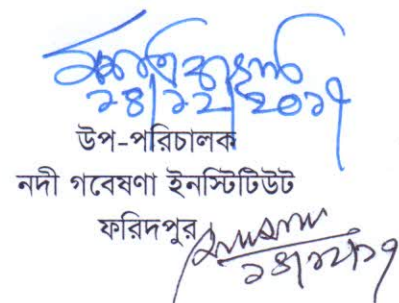 ২৪/১২/২০১৭
উপ-পরিচালক
নদী গবেষণা ইনস্টিটিউট
ফরিদপুর